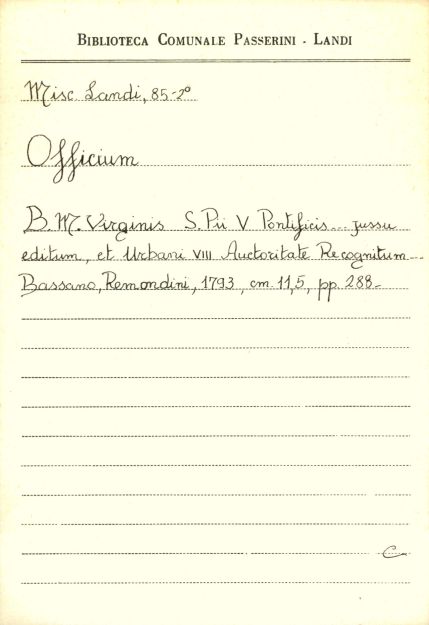 BIBLIOTECA COMUNALE PASSERINI - LANDI
Misc. Landi, 85-2º
Officium
B. M. Virginis S. Pii V Pontificis... jussu
editum, et Urbani VIII Auctoritate Recognitum
Bassano, Remondini, 1793, cm. 11,5, pp. 288-
C